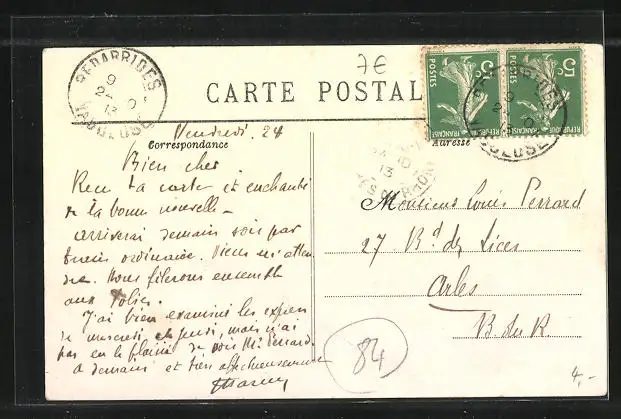 BEDARRIDES
9
27 - 9
13
VAUCLUSE
7€
CARTE POSTALE
5c
POSTES
REPUBLIQUE FRANÇAISE
5c
POSTES
REPUBLIQUE FRANÇAISE
Correspondance
Adresse
Vendredi 24
Bien cher
Reçu ta carte et enchanté
de ta bonne nouvelle -
arriverai demain soir par
train ordinaire. Viens m'atten
dre. Nous filerons ensemble
aux Folies.
J'ai bien examiné les
de mercredi et jeudi, mais n'ai
pas eu le plaisir de voir Mr Perrard.
à demain et bien affectueusement
Monsieur Louis Perrard
27 Bd des Lices
Arles
B du R
84
4,-